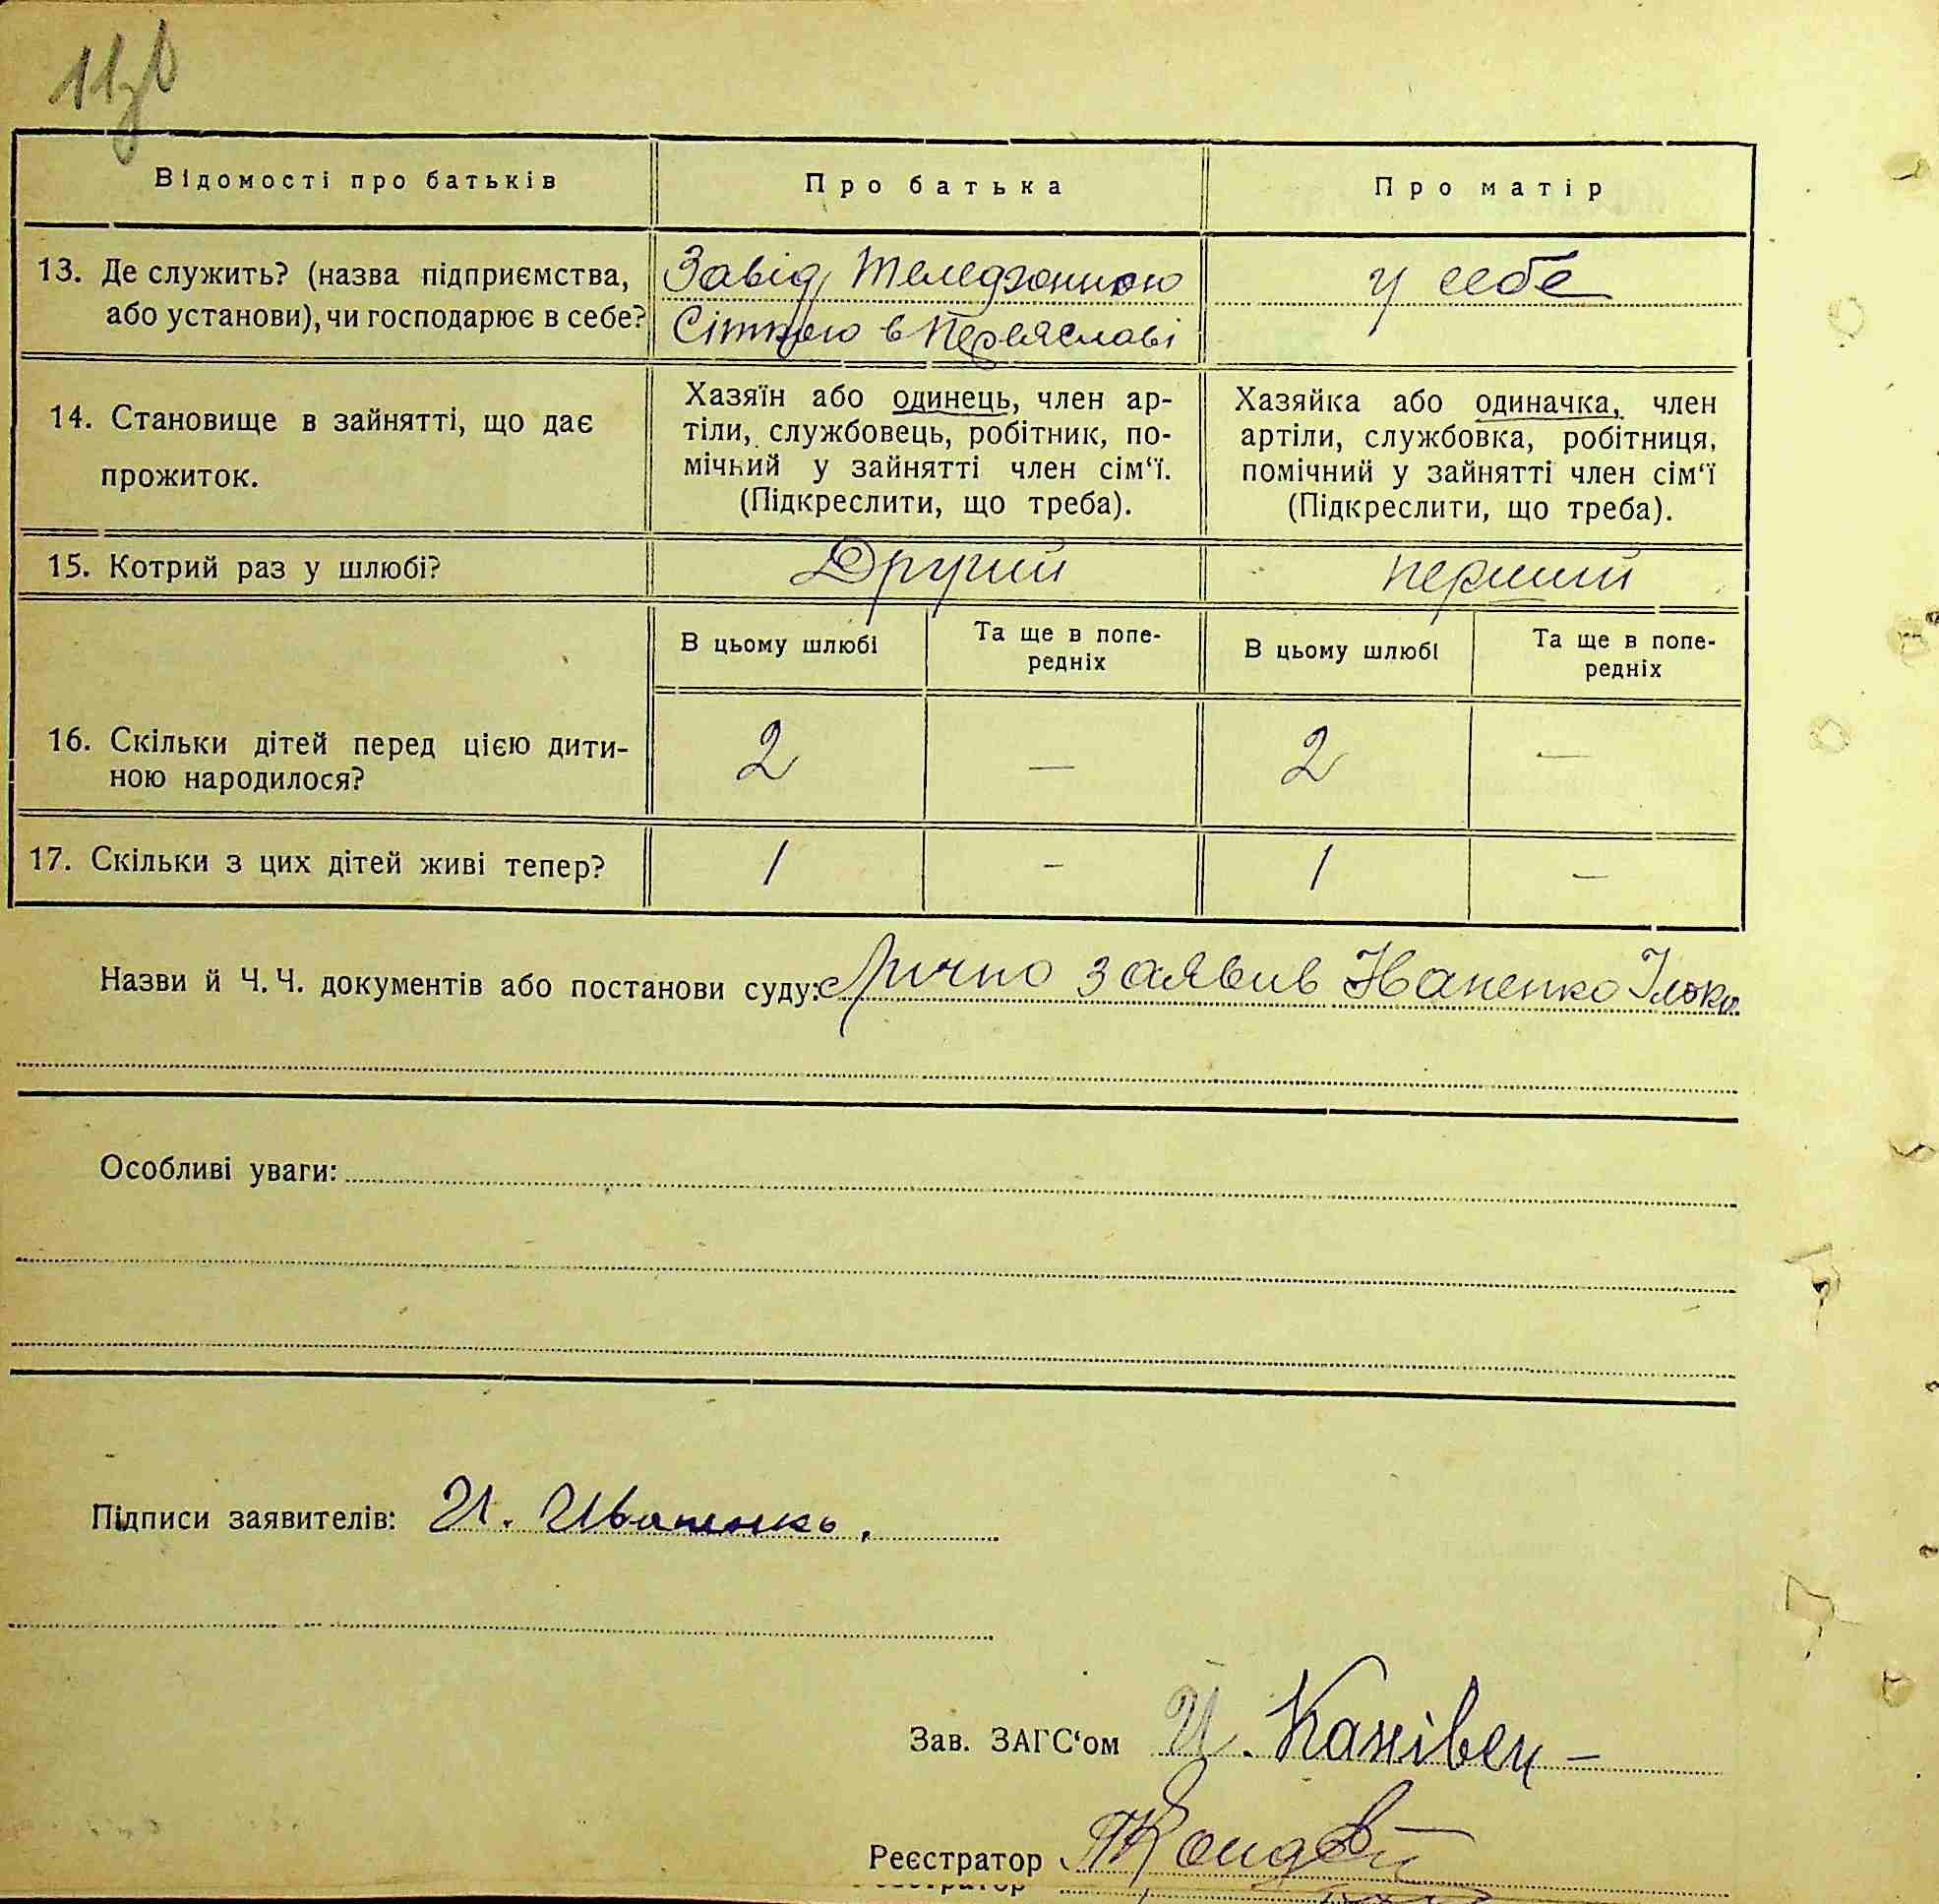 11зв
Відомості про батьків Про батька Про матір
13. Де служить? (назва підприємства, Завід. Телефонною у себе
або установи), чи господарює в себе? Сіткою в Переяславі
Хазяїн або одинець, член ар- Хазяйка або одиначка, член
14. Становище в зайнятті, що дає тіли, службовець, робітник, по- артіли, службовка, робітниця,
прожиток. мічний у зайнятті член сім‘ї. помічний у зайнятті член сім‘ї
(Підкреслити, що треба). (Підкреслити, що треба).
15. Котрий раз у шлюбі? Другий перший
В цьому шлюбі Та ще в попе- В цьому шлюбі Та ще в попе-
редніх редніх
16. Скільки дітей перед цією дити- 2 — 2 —
ною народилося?
17. Скільки з цих дітей живі тепер? 1 — 1 —
Назви й Ч. Ч. документів або постанови суду: Лично заявив Іваненко Ілько
Особливі уваги:
Підписи заявителів: И. Иваненко.
Зав. ЗАГС‘ом И. Канівец —
Реєстратор